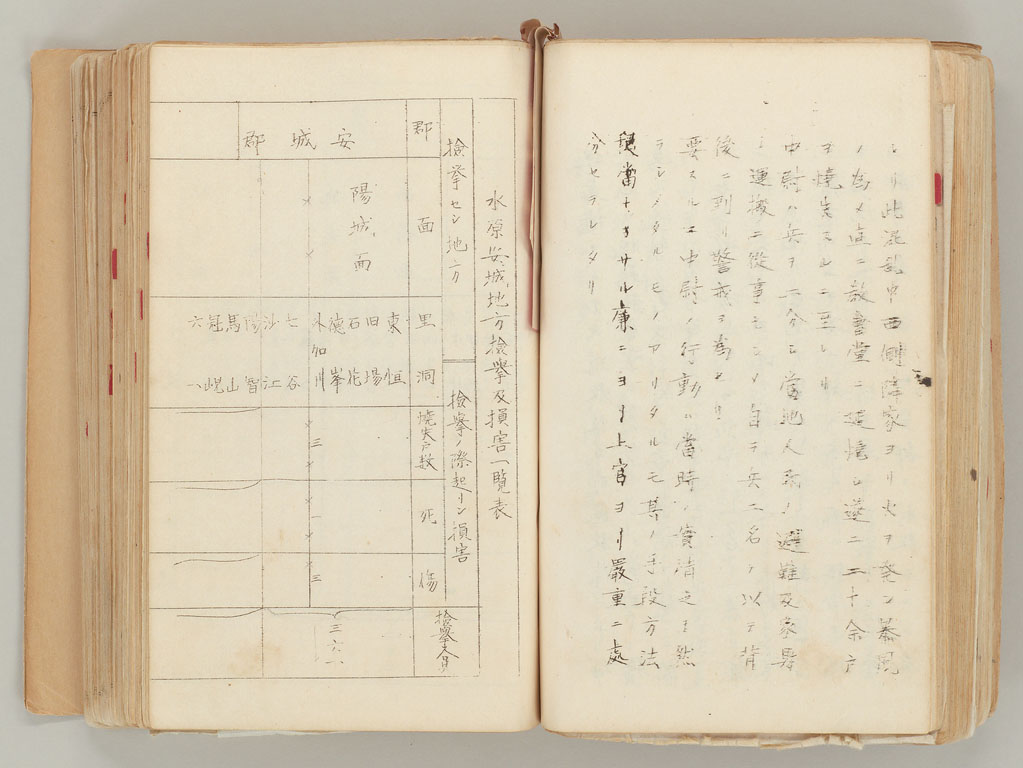 シ此混乱中西側隣家ヨリ火ヲ発シ暴風
ノ為メ直ニ教堂ニ延焼シ遂ニ二十余戸
ヲ焼失スルニ至レリ
中尉ハ兵ヲ二分シ当地人民ノ避難及家具
ノ運搬ニ従事セシメ自ラ兵二名ヲ以テ背
後ニ到リ警戒ヲ為セリ
要スルニ中尉ノ行動ハ當時ノ實情之ヲ然
ラシメタルモノアリタルモ其ノ手段方法
穏當ナラサル廉ニヨリ上官ヨリ嚴重ニ處
分セラレタリ
水原安城地方検擧及損害一覧表
検挙セシ地方
検擧ノ際起リシ損害
検擧人員
郡
面
里洞
焼失戸数
死
傷
安城郡
陽城面
東恒
旧場
石花
徳峯
外加川
三
一
三
三六一
七谷
沙江
陽智
馬山
冠峴
六一